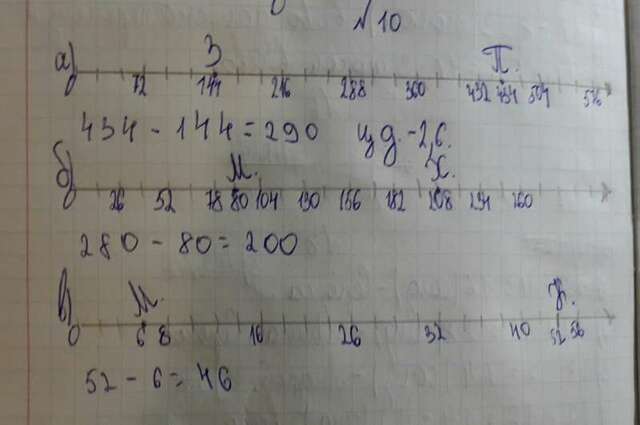 № 10
а) З П.
0 72 144 216 288 360 432 434 504 576
434 - 144 = 290 ц.д. - 2,6.
б) М. Х.
0 26 52 78 80 104 130 156 182 208 234 260
280 - 80 = 200
в) М.
0 6 8 16 26 32 40 52 56
52 - 6 = 46